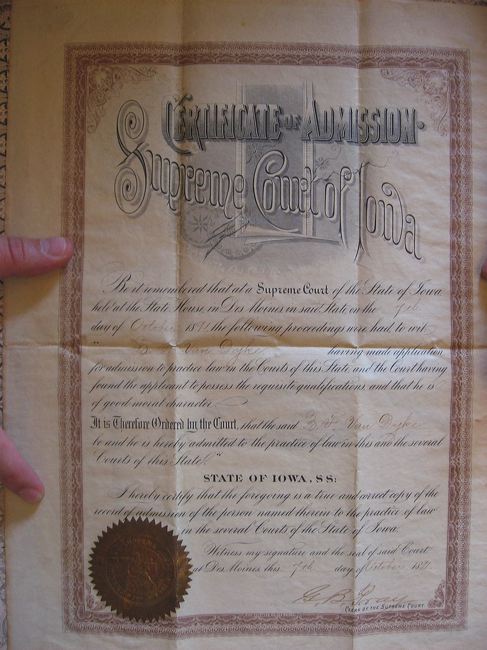 CERTIFICATE OF ADMISSION
Supreme Court of Iowa
Be it remembered that at a Supreme Court of the State of Iowa
held at the State House, in Des Moines in said State on the 7th
day of October 1891 the following proceedings were had to wit:
Van Dyke having made application
for admission to practice law in the Courts of this State and the Court having
found the applicant to possess the requisite qualifications and that he is
of good moral character.
It is Therefore Ordered by the Court, that the said Van Dyke
be and he is hereby admitted to the practice of law in this and the several
Courts of this State."
STATE OF IOWA, SS:
I hereby certify that the foregoing is a true and correct copy of the
record of admission of the person named therein to the practice of law
in the several Courts of the State of Iowa.
Witness my signature and the seal of said Court
at Des Moines this 7th day of October 1891.
CLERK OF THE SUPREME COURT